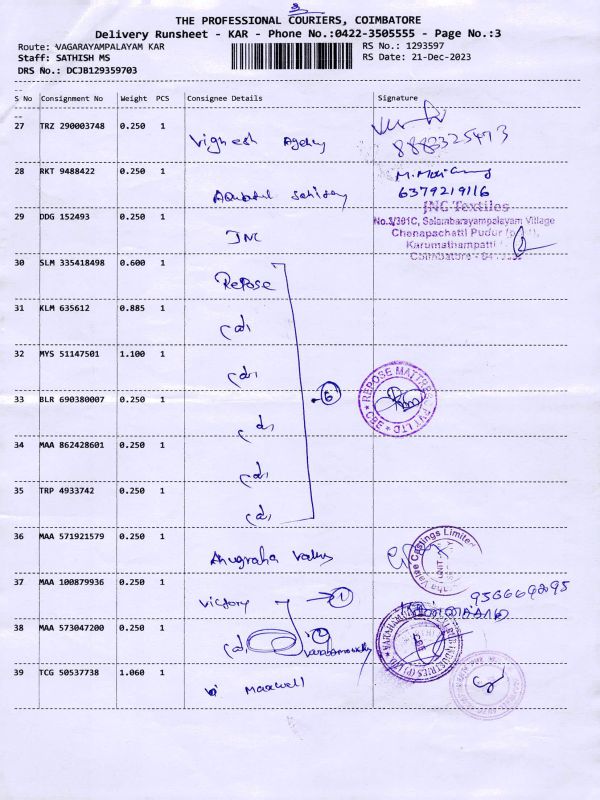 3
THE PROFESSIONAL COURIERS, COIMBATORE
Delivery Runsheet - KAR - Phone No.:0422-3505555 - Page No.:3
Route: VAGARAYAMPALAYAM KAR
RS No.: 1293597
Staff: SATHISH MS
RS Date: 21-Dec-2023
DRS No.: DCJB129359703
S No Consignment No Weight PCS Consignee Details Signature
27 TRZ 290003748 0.250 1 Vignesh Agency
8883325473
28 RKT 9488422 0.250 1
6379219116
29 DDG 152493 0.250 1 JNC
JNC Textiles
No.3/301C, Salambarayampalayam Village
Chenapachatti Pudur
Karumathampatti
Coimbatore - 641
30 SLM 335418498 0.600 1 Repose
31 KLM 635612 0.885 1
32 MYS 51147501 1.100 1
33 BLR 690380007 0.250 1
6
REPOSE MATTRESS PVT LTD * CBE *
34 MAA 862428601 0.250 1
35 TRP 4933742 0.250 1
36 MAA 571921579 0.250 1 Anugraha Valve
Valve Castings Limited
UNIT
37 MAA 100879936 0.250 1 Victory 1
9566692095
38 MAA 573047200 0.250 1 2
INDUSTRIES (P) LTD
39 TCG 50537738 1.060 1 Maxwell